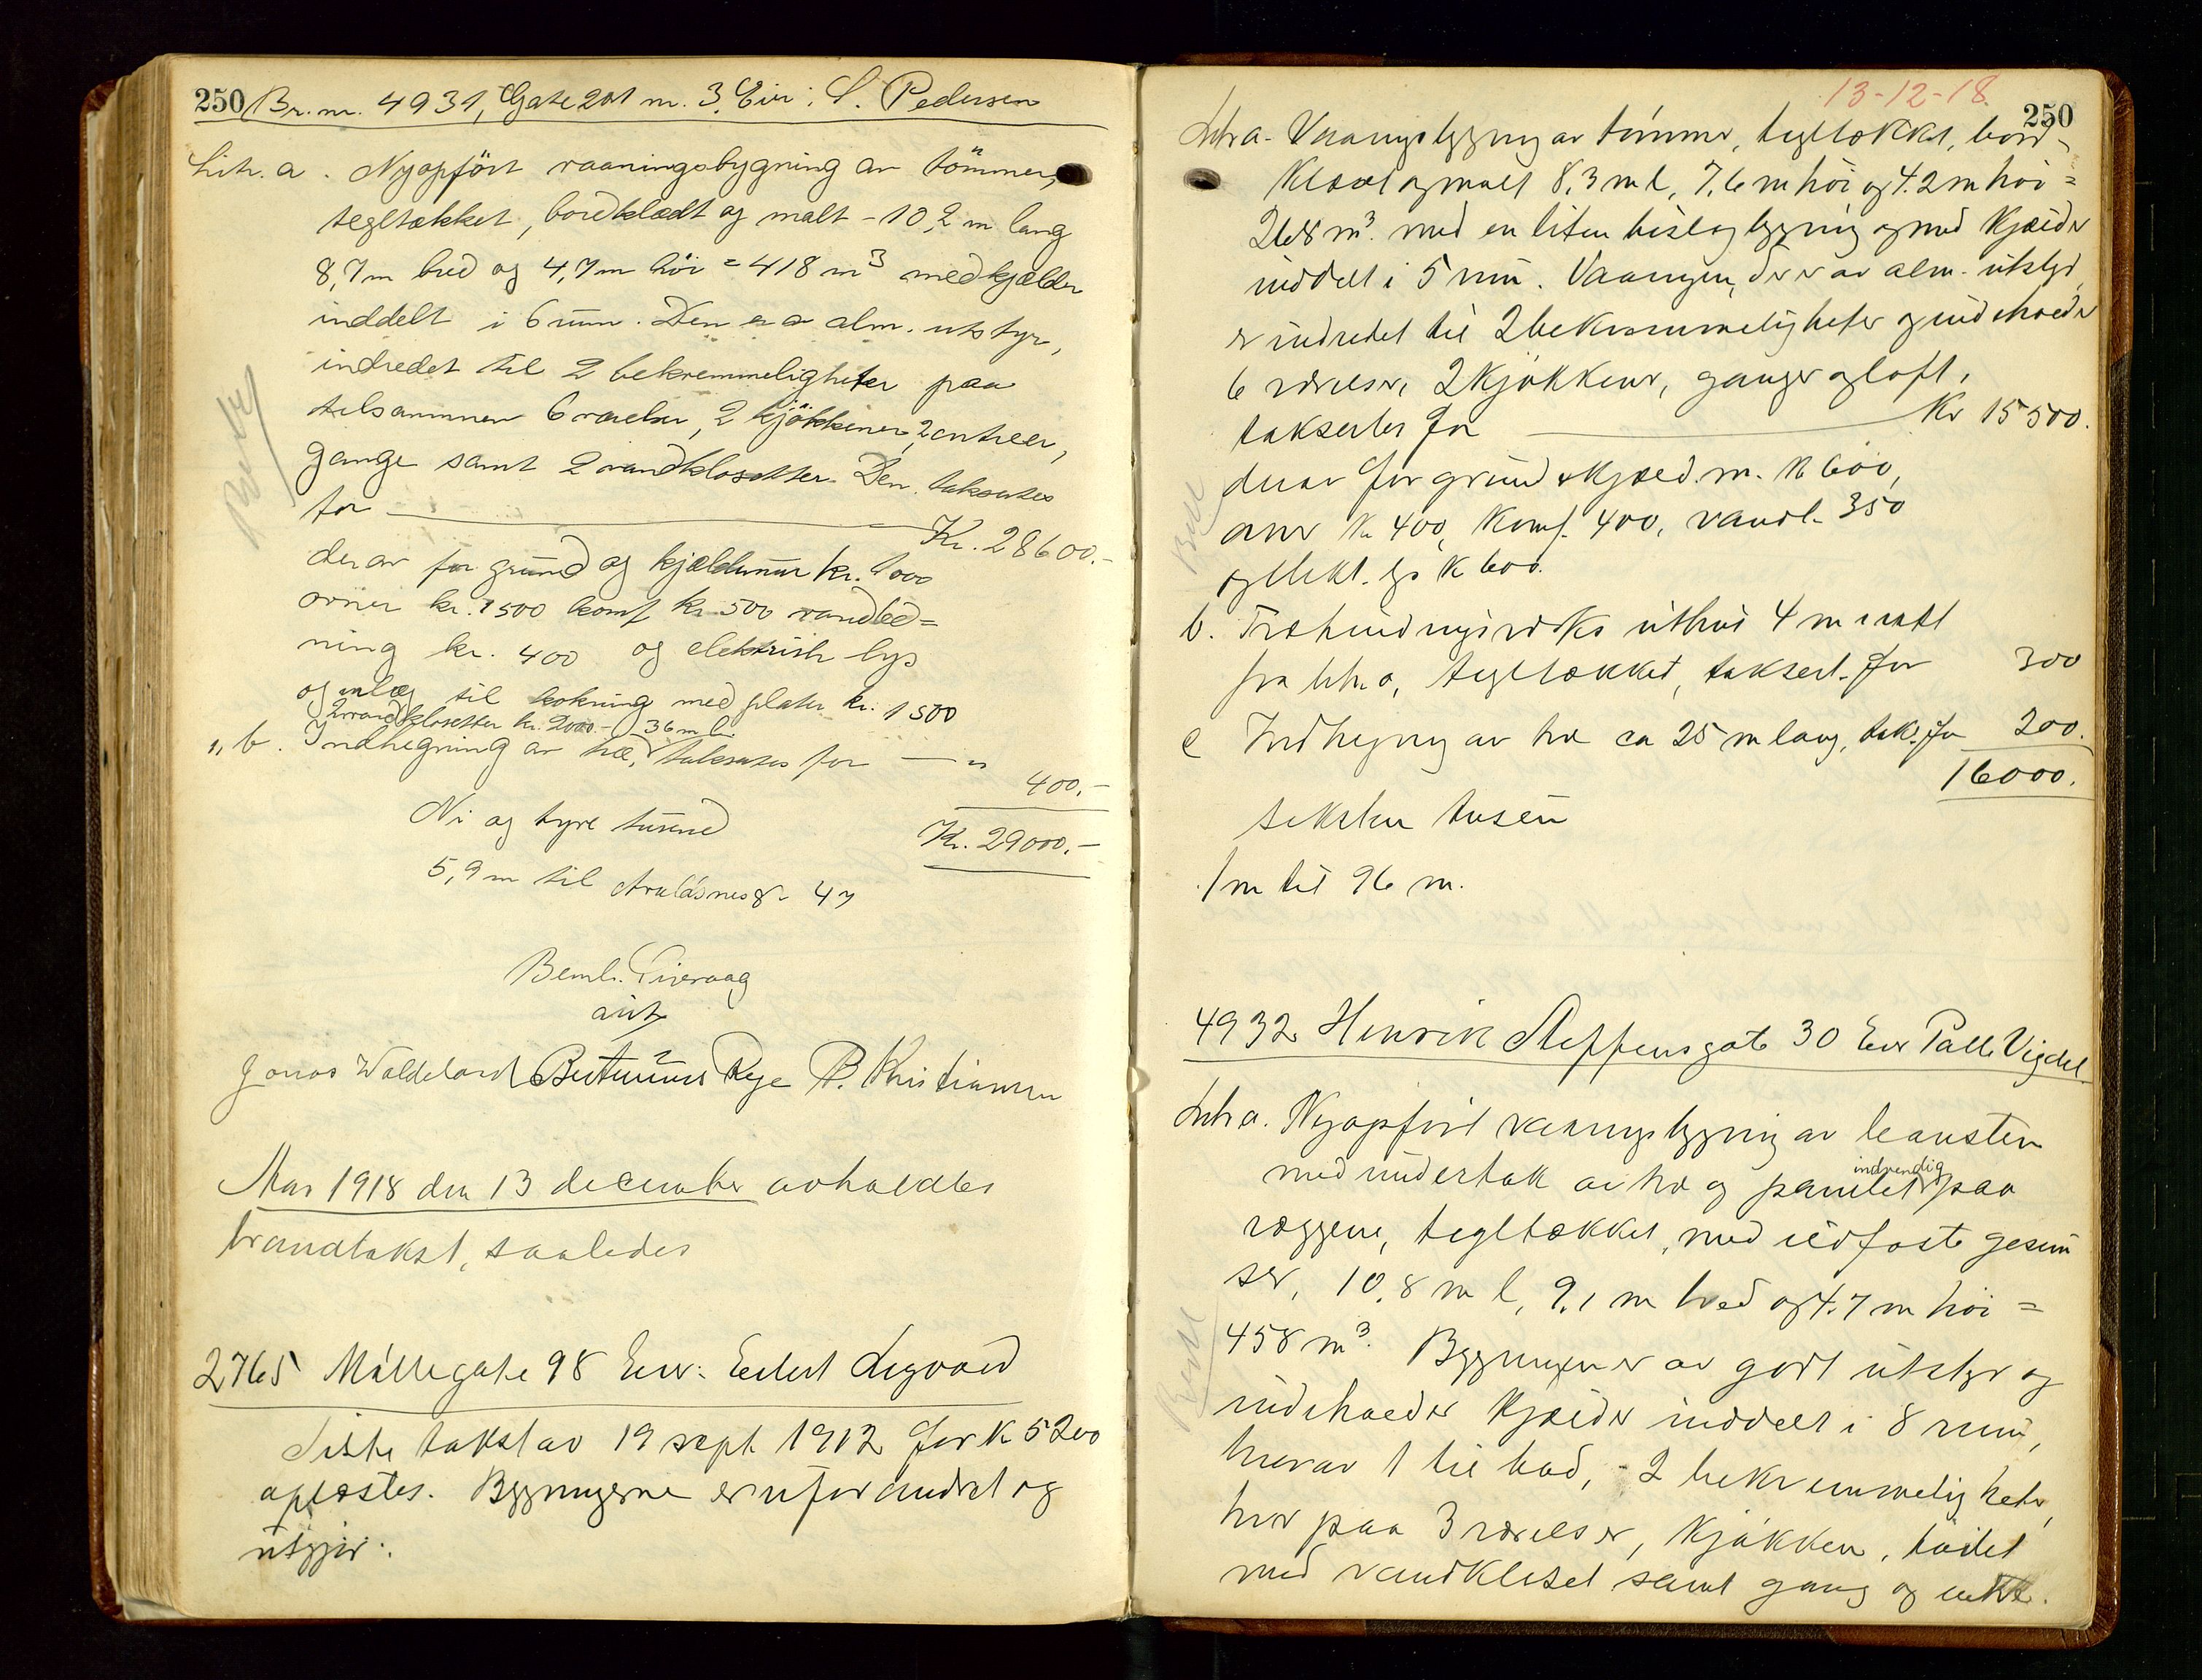 250 Br. nr. 4931, Gate 201 nr. 3. Eier: S. Pedersen
Litr. a. Nyopført vaaningsbygning av tømmer,
tegltækket, bordklædt og malt - 10,2 m lang
8,7 m bred og 4,7 m høi = 418 m³ med kjælder
inddelt i 6 rum. Den er av alm. utstyr,
indredet til 2 bekvemmeligheter paa
tilsammen 6 værelser, 2 kjøkkener, 2 entreer,
gange samt 2 vandklosetter. Den takseres
for — Kr. 28600.-
derav for grund og kjældermur kr. 4000
ovner kr. 1500 komf kr. 500 vandled=
ning kr. 400 og elektrisk lys
og inlæg til kokning med plater kr. 1500
2 vandklosetter kr. 2000.-
36 m l.
" b. Indhegning av træ, takseres for — " 400.-
Ni og tyve tusind
Kr. 29000.-
5,9 m til Avaldsnesg. 47
Bemh. Tveraag
Jonas Waldeland Rege P. Kristiansen
Aar 1918 den 13 december avholdtes
brandtakst, saaledes
2765 Møllegate 98 Eier: Eilert Legvold
Siste takst av 19 sept 1912 for K 5200
oplæstes. Bygningerne er uforandret og
utgjør:
13-12-18.
250
Litr a. Vaaningsbygning av tømmer, tegltækket, bord-
klædt og malt 8,3 m l, 7,6 m høi og 4.2 m høi =
268 m³. med en liten bislagbygning og med kjælder
inddelt i 5 rum. Vaaningen, der er av alm. utstyr,
er indredet til 2 bekvemmeligheter og indeholder
6 værelser, 2 kjøkkener, ganger og loft,
takseres for — Kr 15500.
derav for grund & kjæld.m. K 600,
ovner K 400, Komf. 400, vandl. 350
og elekt. lys K 600.
b. Træbindingsverks uthus 4 m
fra litr. a, tegltækket, taksert for 300
c Indhegning av træ ca 25 m lang, taks. for 200.
16000.
seksten tusen
1 m til 96 m.
4932 Henrik Steffensgate 30 Eier Palle Vigdel
Litr a. Nyopført vaaningsbygning av
med undertak av træ og panelet indvendig paa
væggene, tegltækket, med ildfaste gesim
ser, 10,8 m l, 9,1 m bred og 4.7 m høi =
458 m³. Bygningen er av godt utstyr og
indeholder kjælder inddelt i 8 rum,
hvorav 1 til bad, - 2 bekvemmeligheter,
hver paa 3 værelser, kjøkken,
med vandkloset samt gang og